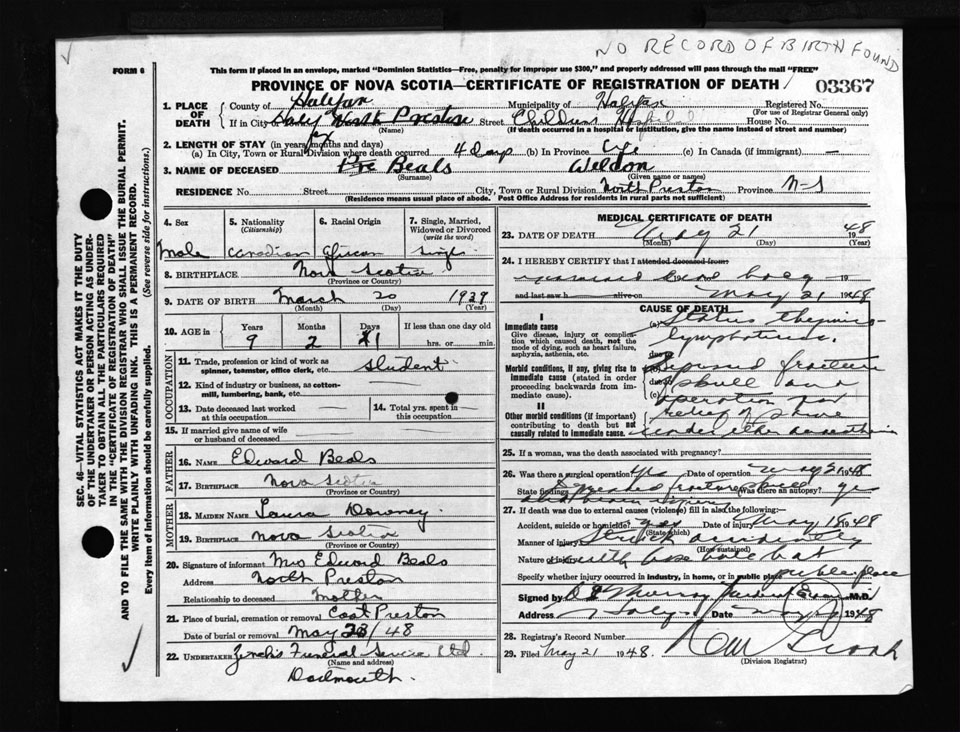 NO RECORD OF BIRTH FOUND
FORM 6
This form if placed in an envelope, marked "Dominion Statistics—Free, penalty for improper use $300," and properly addressed will pass through the mail "FREE"
PROVINCE OF NOVA SCOTIA—CERTIFICATE OF REGISTRATION OF DEATH
03367
1. PLACE OF DEATH
County of Halifax Municipality of Halifax Registered No.
(For use of Registrar General only)
If in City or North Preston Street Childrens Hospital House No.
(Name) (If death occurred in a hospital or institution, give the name instead of street and number)
2. LENGTH OF STAY (in years, months and days)
(a) In City, Town or Rural Division where death occurred 4 days (b) In Province Life (c) In Canada (if immigrant) —
3. NAME OF DECEASED Beals Weldon
(Surname) (Given name or names)
RESIDENCE No. Street City, Town or Rural Division North Preston Province N-S
(Residence means usual place of abode. Post Office Address for residents in rural parts not sufficient)
4. Sex Male
5. Nationality (Citizenship) Canadian
6. Racial Origin African
7. Single, Married, Widowed or Divorced (write the word) Single
8. BIRTHPLACE Nova Scotia
(Province or Country)
9. DATE OF BIRTH March 20 1939
(Month) (Day) (Year)
10. AGE in Years Months Days If less than one day old
9 2 1 hrs. or min.
OCCUPATION
11. Trade, profession or kind of work as spinner, teamster, office clerk, etc. Student
12. Kind of industry or business, as cotton-mill, lumbering, bank, etc. —
13. Date deceased last worked at this occupation —
14. Total yrs. spent in this occupation —
15. If married give name of wife or husband of deceased
FATHER
16. NAME Edward Beals
17. BIRTHPLACE Nova Scotia
(Province or Country)
MOTHER
18. MAIDEN NAME Laura Downey
19. BIRTHPLACE Nova Scotia
(Province or Country)
20. Signature of informant Mrs Edward Beals
Address North Preston
Relationship to deceased Mother
21. Place of burial, cremation or removal East Preston
Date of burial or removal May 23/48
22. UNDERTAKER Funeral Service Ltd
(Name and address)
Dartmouth.
MEDICAL CERTIFICATE OF DEATH
23. DATE OF DEATH May 21 1948
(Month) (Day) (Year)
24. I HEREBY CERTIFY that I attended deceased from
examined dead body 19
and last saw h alive on May 21 1948
CAUSE OF DEATH
I
Immediate cause
Give disease, injury or complication which caused death, not the mode of dying, such as heart failure, asphyxia, asthenia, etc.
(a) Status thymico lymphaticus.
due to
Morbid conditions, if any, giving rise to immediate cause (stated in order proceeding backwards from immediate cause).
(b) Depressed fracture
due to skull and
(c) operation for
II
Other morbid conditions (if important) contributing to death but not causally related to immediate cause.
relief of same
under ether anaesthesia
25. If a woman, was the death associated with pregnancy?
26. Was there a surgical operation? yes Date of operation May 21 1948
State findings Depressed fracture skull (Was there an autopsy? yes
27. If death was due to external causes (violence) fill in also the following:
Accident, suicide or homicide? yes Date of injury May 18 1948
(State which)
Manner of injury Struck accidently
(How sustained)
Nature of injury with base ball bat
Specify whether injury occurred in industry, in home, or in public place public place
Signed by Murray M.D.
Address Date May 1948
28. Registrar's Record Number
29. Filed May 21 1948.
(Division Registrar)
SEC. 46—VITAL STATISTICS ACT MAKES IT THE DUTY
OF THE UNDERTAKER OR PERSON ACTING AS UNDER-
TAKER TO OBTAIN ALL THE PARTICULARS REQUIRED
IN THE "CERTIFICATE OF REGISTRATION OF DEATH"
AND TO FILE THE SAME WITH THE DIVISION REGISTRAR WHO SHALL ISSUE THE BURIAL PERMIT.
WRITE PLAINLY WITH UNFADING INK. THIS IS A PERMANENT RECORD.
Every item of information should be carefully supplied. (See reverse side for instructions.)